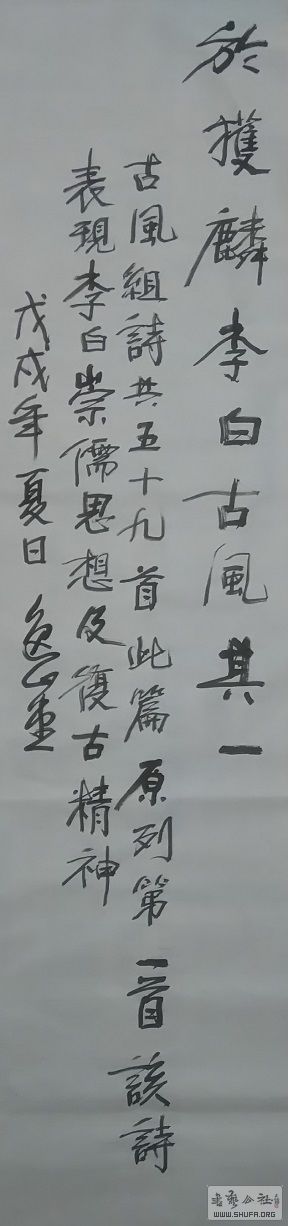 於獲麟李白古風其一
古風組詩共五十九首此篇原列第一首該詩
表現李白崇儒思想及復古精神
戊戌年夏日
书艺公社
WWW.SHUFA.ORG